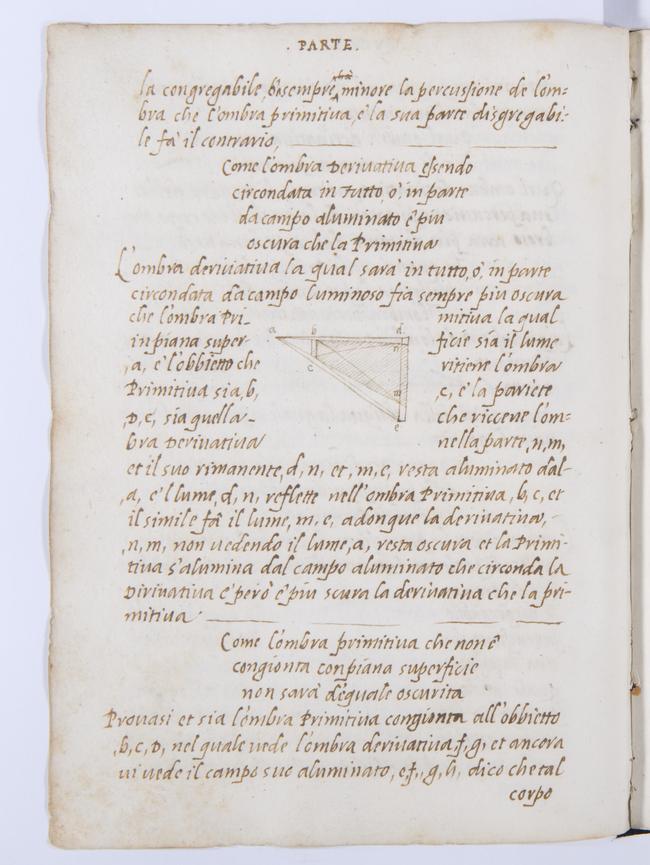 . PARTE .
la congregabile, sempre minore la percussione de l'om=
bra che l'ombra primitiva, e la sua parte disgregabi=
le fà il contrario,
Come l'ombra Derivativa essendo
circondata in tutto, ò, in parte
da campo aluminato è piu
oscura che la Primitiva
L'ombra deriviativa la qual sarà in tutto, ò, in parte
circondata da campo luminoso fia sempre piu oscura
che l'ombra Pri- mitiva la qual
in piana super- a b d n ficie sia il lume
,a, e l'obbietto che c ritiene l'ombra
Primitiva sia, b, m ,c, e la pariete
,D, e, sia quella- e che riceve l'om=
bra Derivativa nella parte, n, m,
et il suo rimanente, d, n, et, m, e, resta aluminato dal-
,a, e'l lume, d, n, reflette nell'ombra Primitiva, b, c, et
il simile fà il lume, m, e, adonque la derivativa,
,n, m, non vedendo il lume, a, resta oscura et la Primi-
tiva s'alumina dal campo aluminato che circonda la
Dirivativa e però è piu scura la derivativa che la pri-
mitiva
Come l'ombra primitiva che non è
congionta con piana superficie
non sarà d'equale oscurita
Provasi et sia l'ombra Primitiva congionta all'obbietto
,b, c, D, nel quale vede l'ombra derivativa, f, g, et ancora
vi vede il campo suo aluminato, e f, g, h, dico che tal
corpo